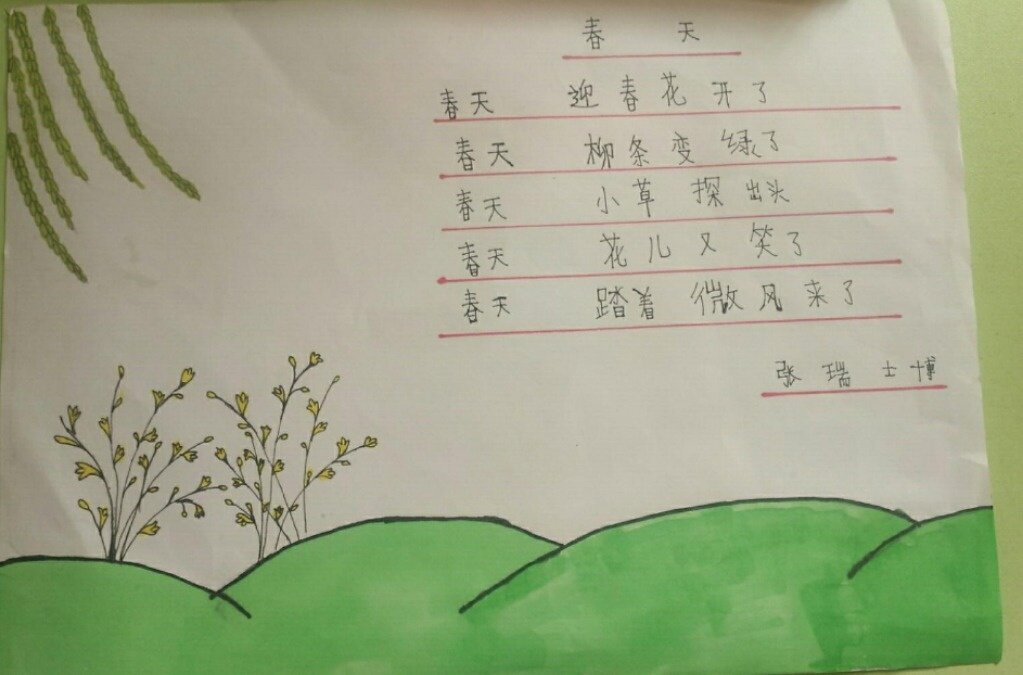 春 天
春天 迎春花开了
春天 柳条变绿了
春天 小草探出头
春天 花儿又笑了
春天 踏着微风来了
张瑞士博